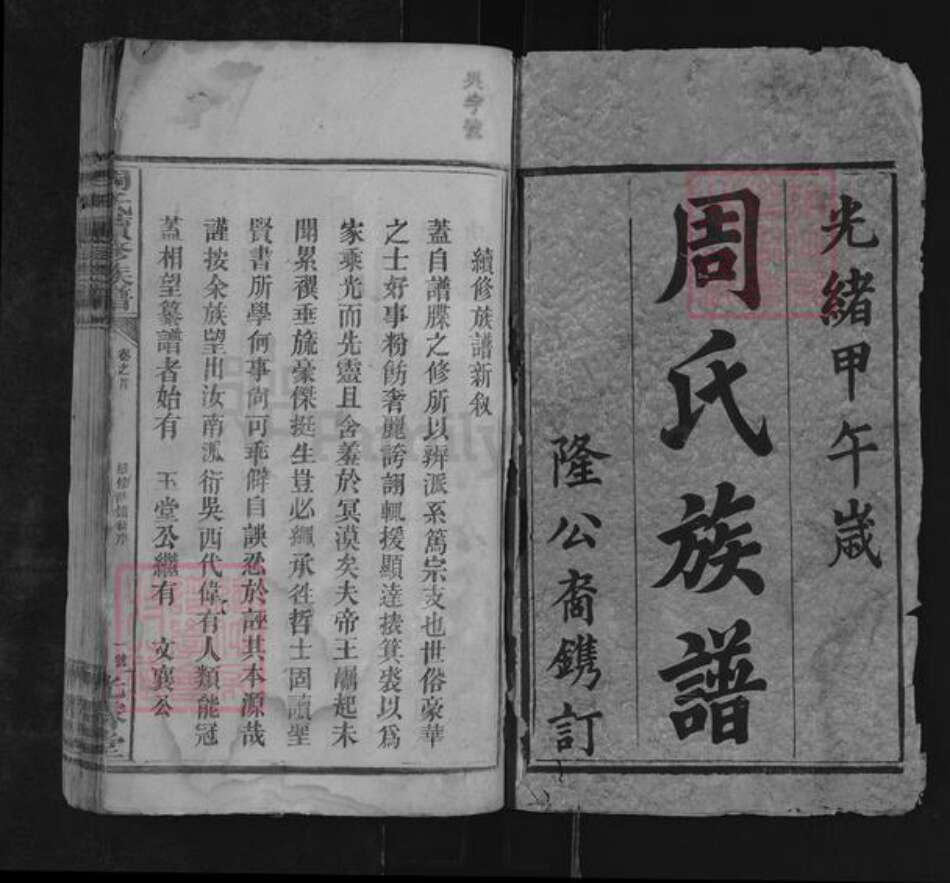 光緒甲午歲
周氏族譜
隆公裔鐫訂
續修族譜新敘
蓋自譜牒之修所以辨派系篤宗支也世俗豪華
之士好事粉飾奢麗誇詡輒援顯達掞箕裘以為
家乘光而先靈且含羞於冥漠矣夫帝王崛起未
聞累禩垂旒豪傑挺生豈必繩承徃哲士固讀聖
賢書所學何事尚可乖僻自誤忍於誣其本源哉
謹按余族望出汝南派衍吳西代偉有人類能冠
蓋相望纂譜者始有 玉堂公繼有 文襄公
周氏續修族譜
卷之首
一號